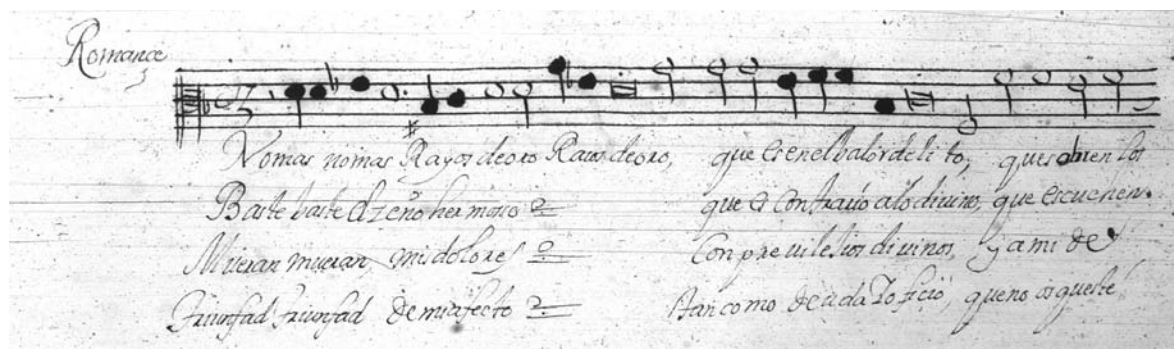 Romance
No mas no mas Rayos de oro Raios de oro, que es en el balor delito, que sobre en los
Baste baste el zeño hermosso que es contrario a lo divino, que escuchen
Mueran mueran, mis dolores Con previlesios divinos, y a mi de
Triunfad triunfad de mi afecto tan como de cada que no os